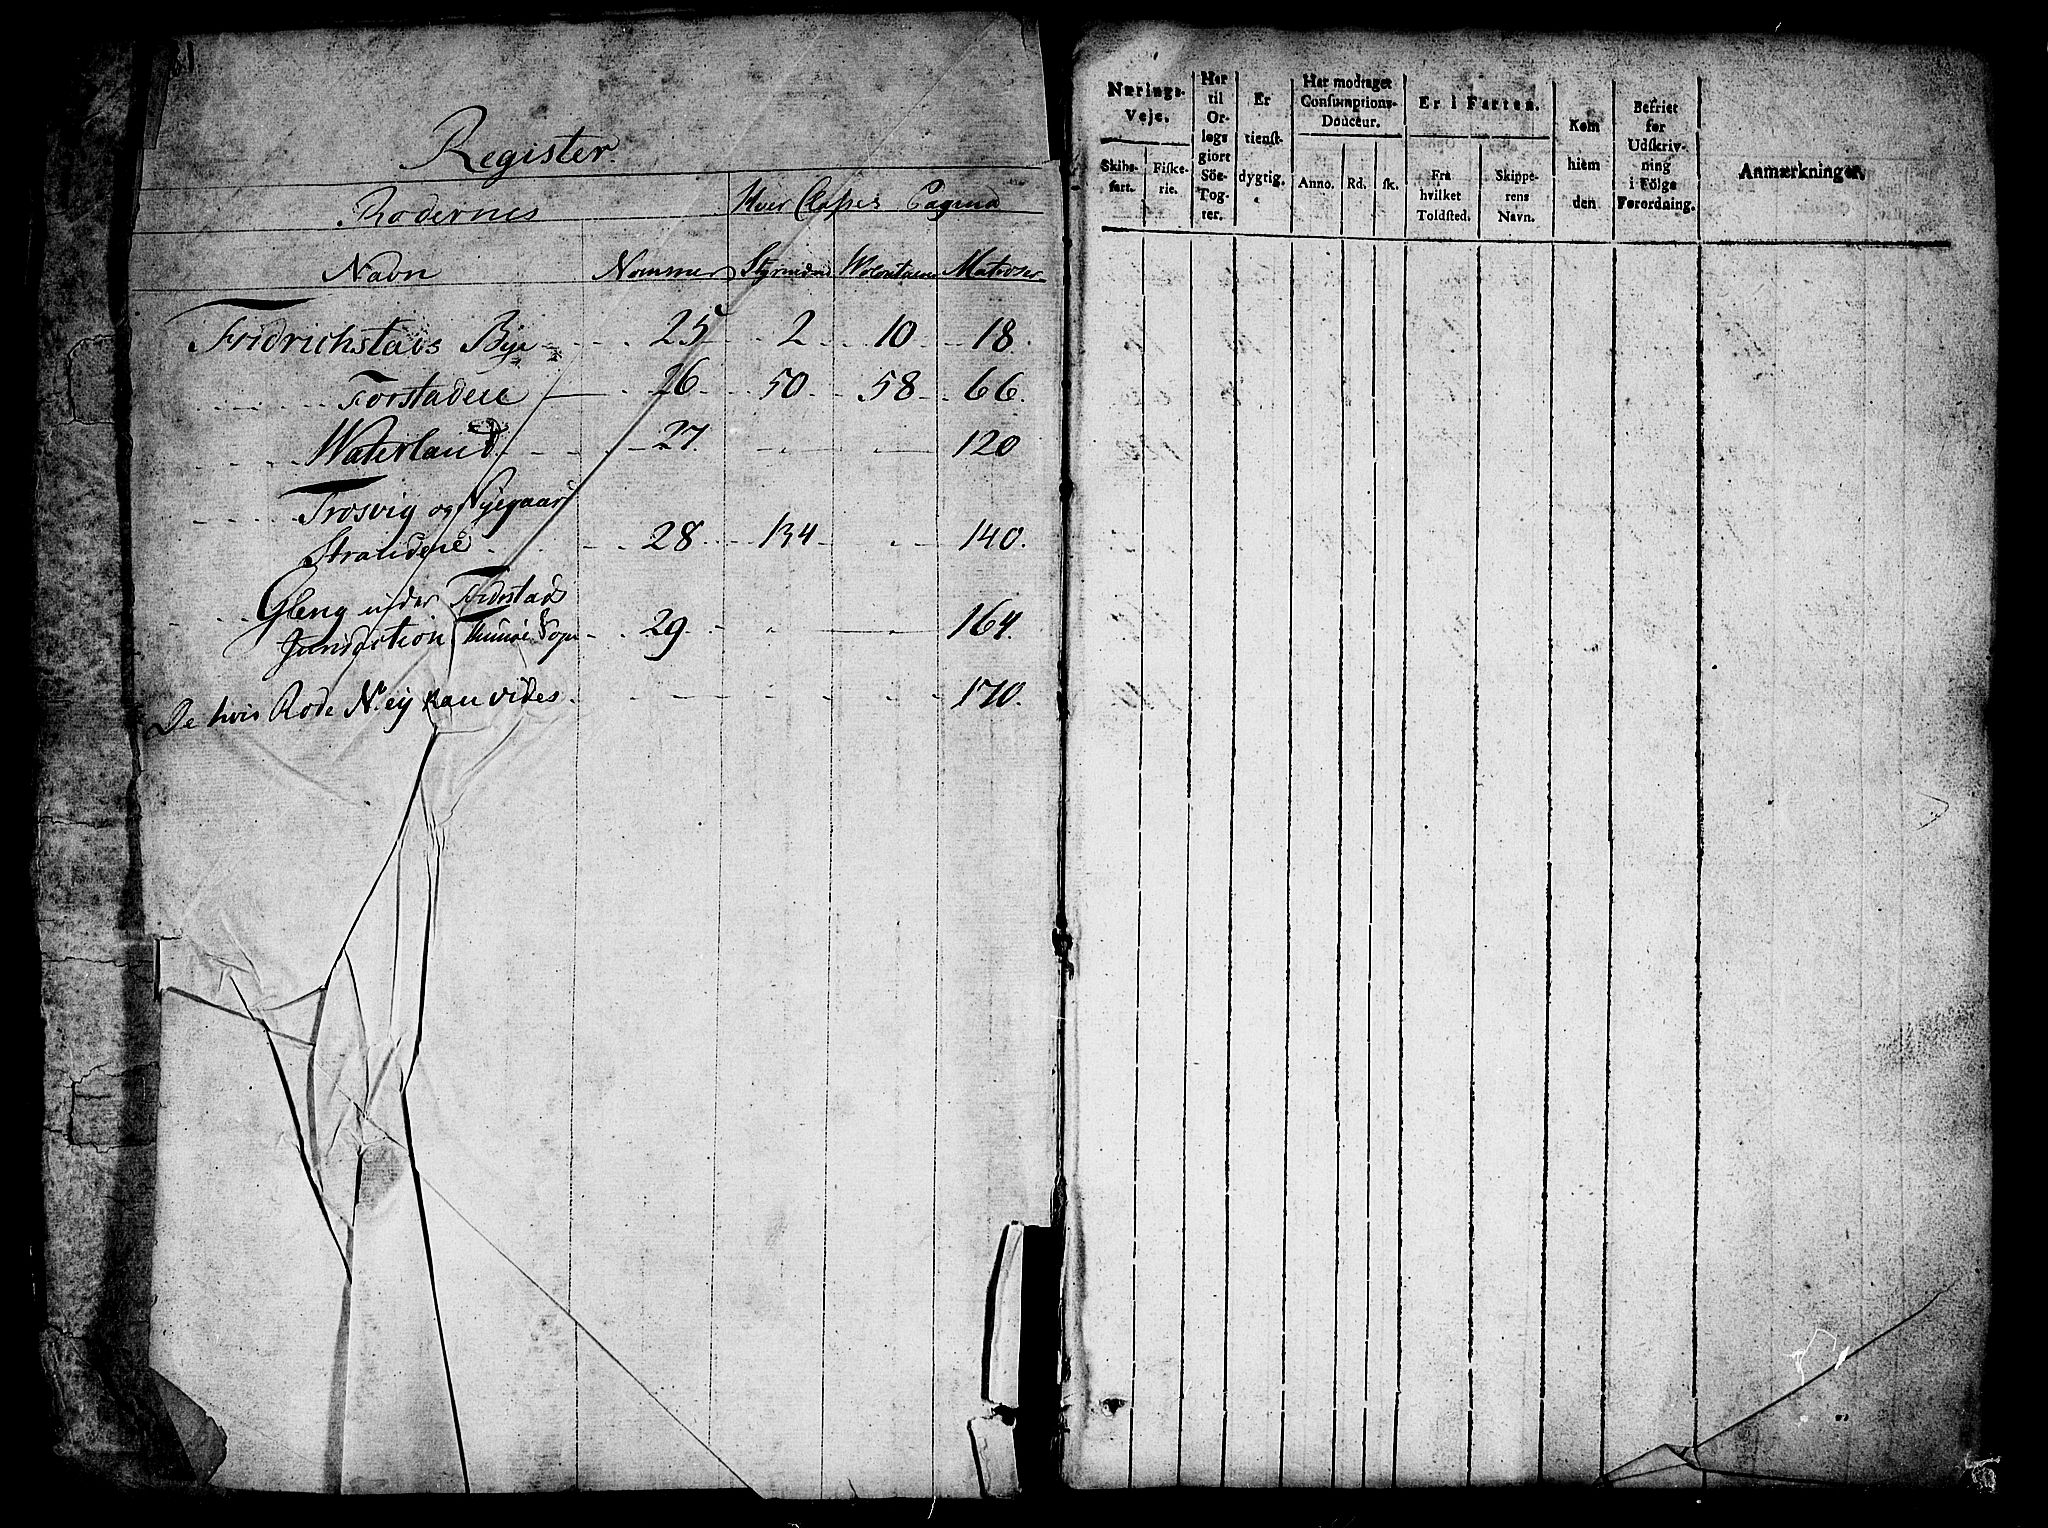 Register
Rodernes Hver Classes Pagina
Navn Nommer Styrmænd Matroser
Fridrichstads Bye 25 2 10 18.
Forstadene 26 50 58 66.
Waterland 27. 120
Trosvig og Nyegaard
Strandene 28 134 140.
Gleng under Fridrstads
Jurisdiction 29 164.
De hvis Rode N. ey kan vides. 170.
Nærings-
Veje.
Skibs-
fart.
Fiske-
rie.
Har
til
Or-
logs
giort
Söe-
Tog-
ter.
Er
tienst-
dygtig.
Har modtaget
Consumptions-
Douceur.
Anno. Rd. sk.
Er i Farten.
Fra
hvilket
Toldsted.
Skippe-
rens
Navn.
Kom
hiem
den
Befriet
for
Udskriv-
ning
i Fölge
Forordning.
Anmærkninger.